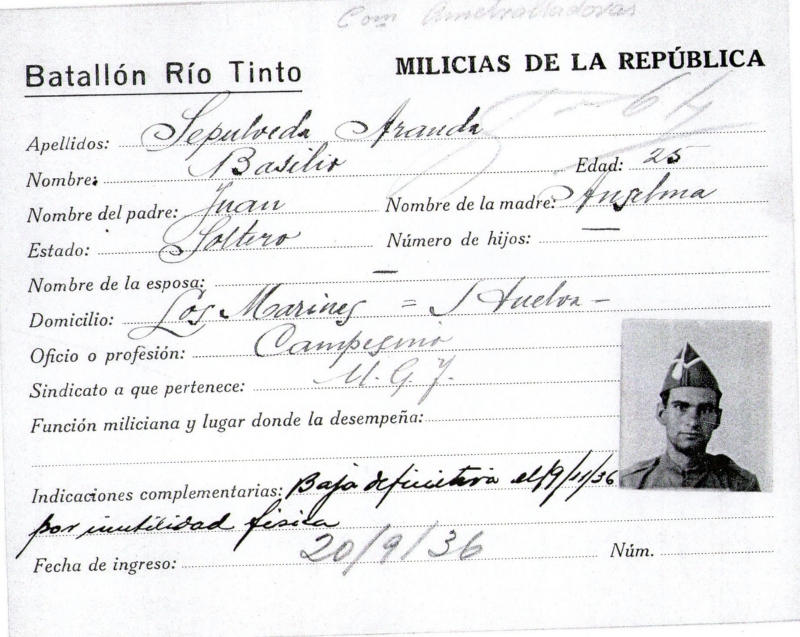 Com Ametralladoras
Batallón Río Tinto
MILICIAS DE LA REPÚBLICA
Apellidos: Sepulveda Aranda
Nombre: Basilio Edad: 25
Nombre del padre: Juan Nombre de la madre: Anselma
Estado: Soltero Número de hijos: —
Nombre de la esposa: —
Domicilio: Los Marines = Huelva –
Oficio o profesión: Campesino
Sindicato a que pertenece: U. G. T.
Función miliciana y lugar donde la desempeña:
Indicaciones complementarias: Baja definitiva el 9/11/36
por inutilidad fisica
Fecha de ingreso: 20/9/36 Núm.